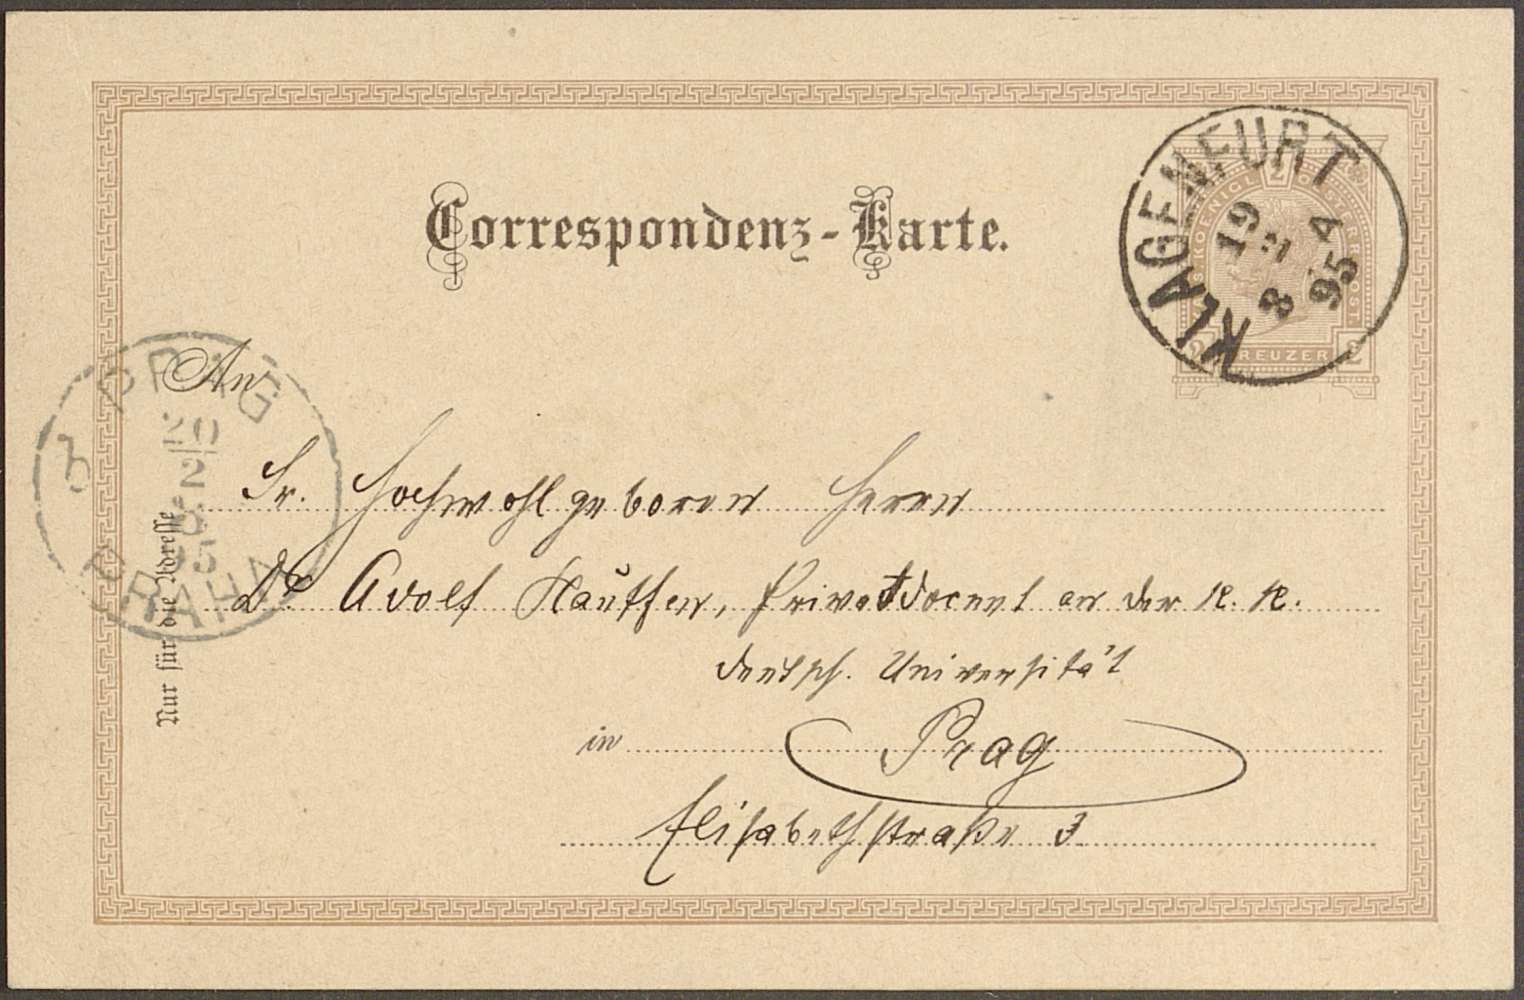 Correspondenz-Karte.
KLAGENFURT
19 2 4
8 95
KAIS. KOENIGL. OESTERR. POST.
2 KREUZER 2
An
PRAG
3
20
2
8
95
PRAHA
Nur für die Adresse
Sr. Hochwohlgeboren Herrn
Dr Adolf Hauffen, Privatdocent an der k. k.
deutsch. Universität
in Prag
Elisabethstraße 3.